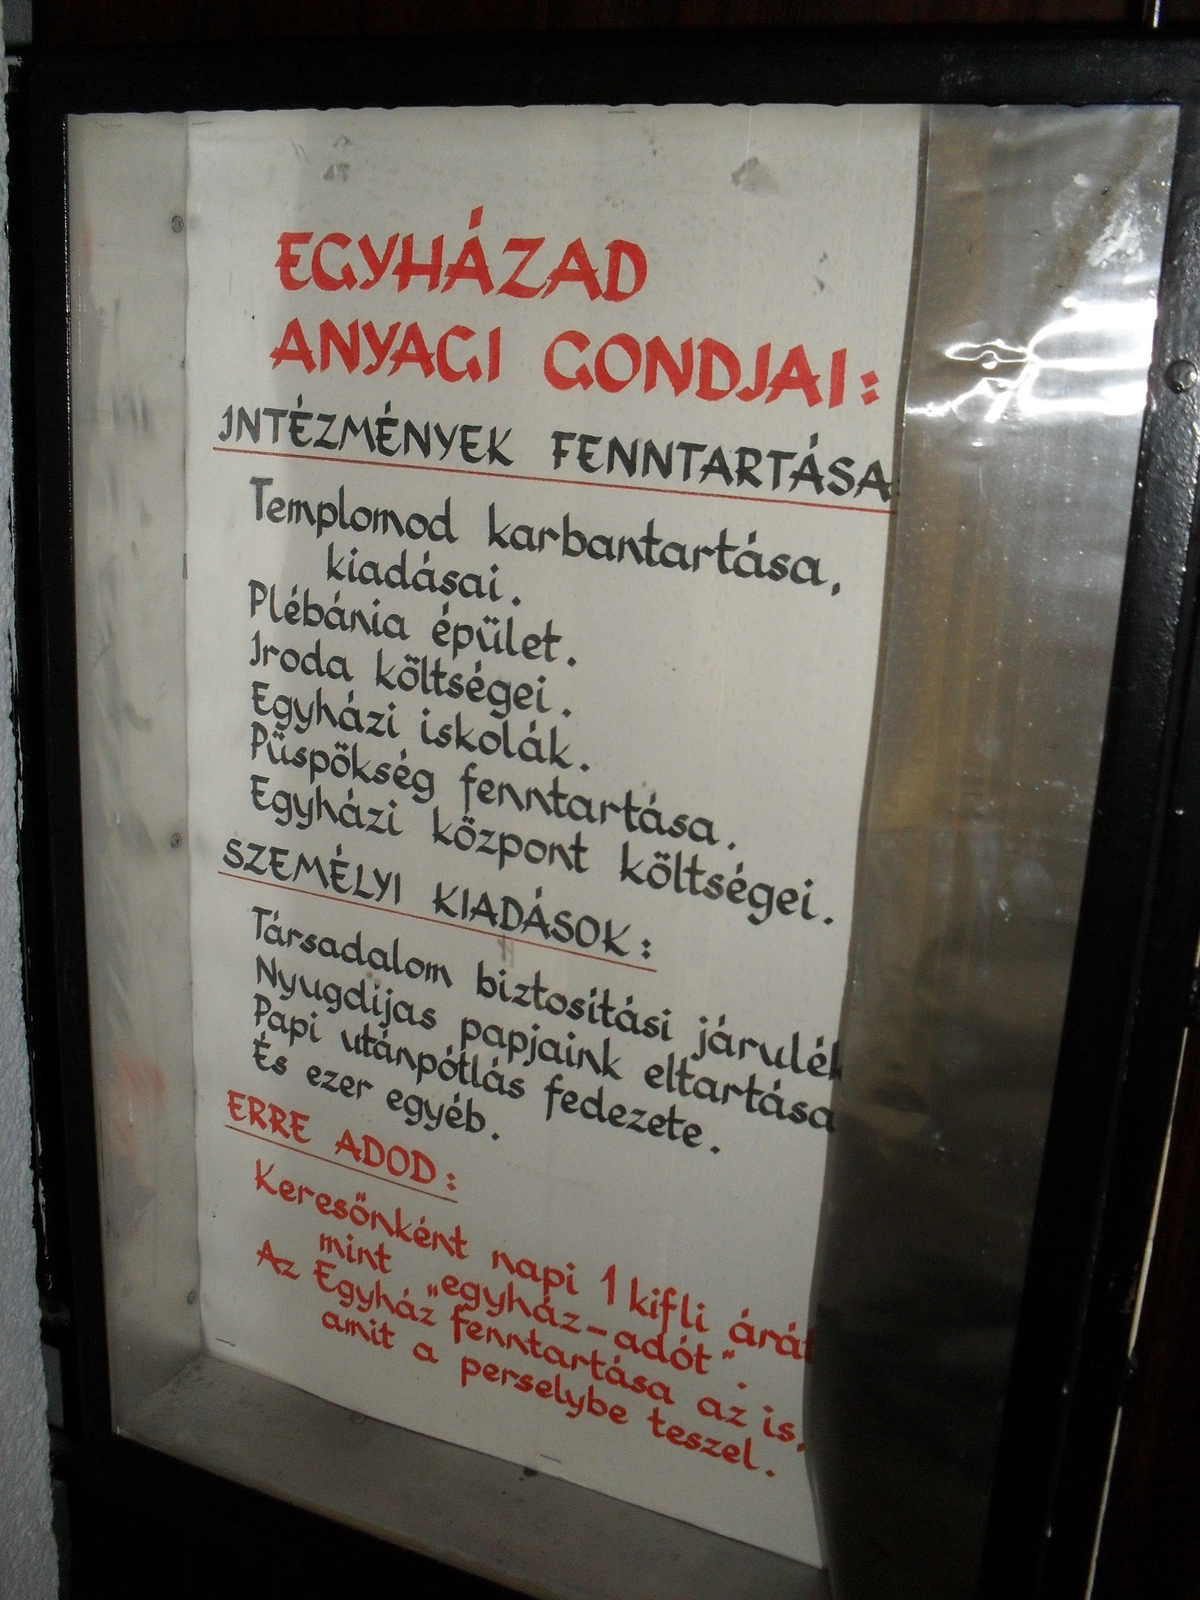 EGYHÁZAD
ANYAGI GONDJAI:
INTÉZMÉNYEK FENNTARTÁSA
Templomod karbantartása,
kiadásai.
Plébánia épület.
Iroda költségei.
Egyházi iskolák.
Püspökség fenntartása.
Egyházi központ költségei.
SZEMÉLYI KIADÁSOK:
Társadalom biztosítási járulék
Nyugdíjas papjaink eltartása
Papi utánpótlás fedezete.
És ezer egyéb.
ERRE ADOD:
Keresőnként napi 1 kifli árát
mint "egyház-adót".
Az Egyház fenntartása az is,
amit a perselybe teszel.